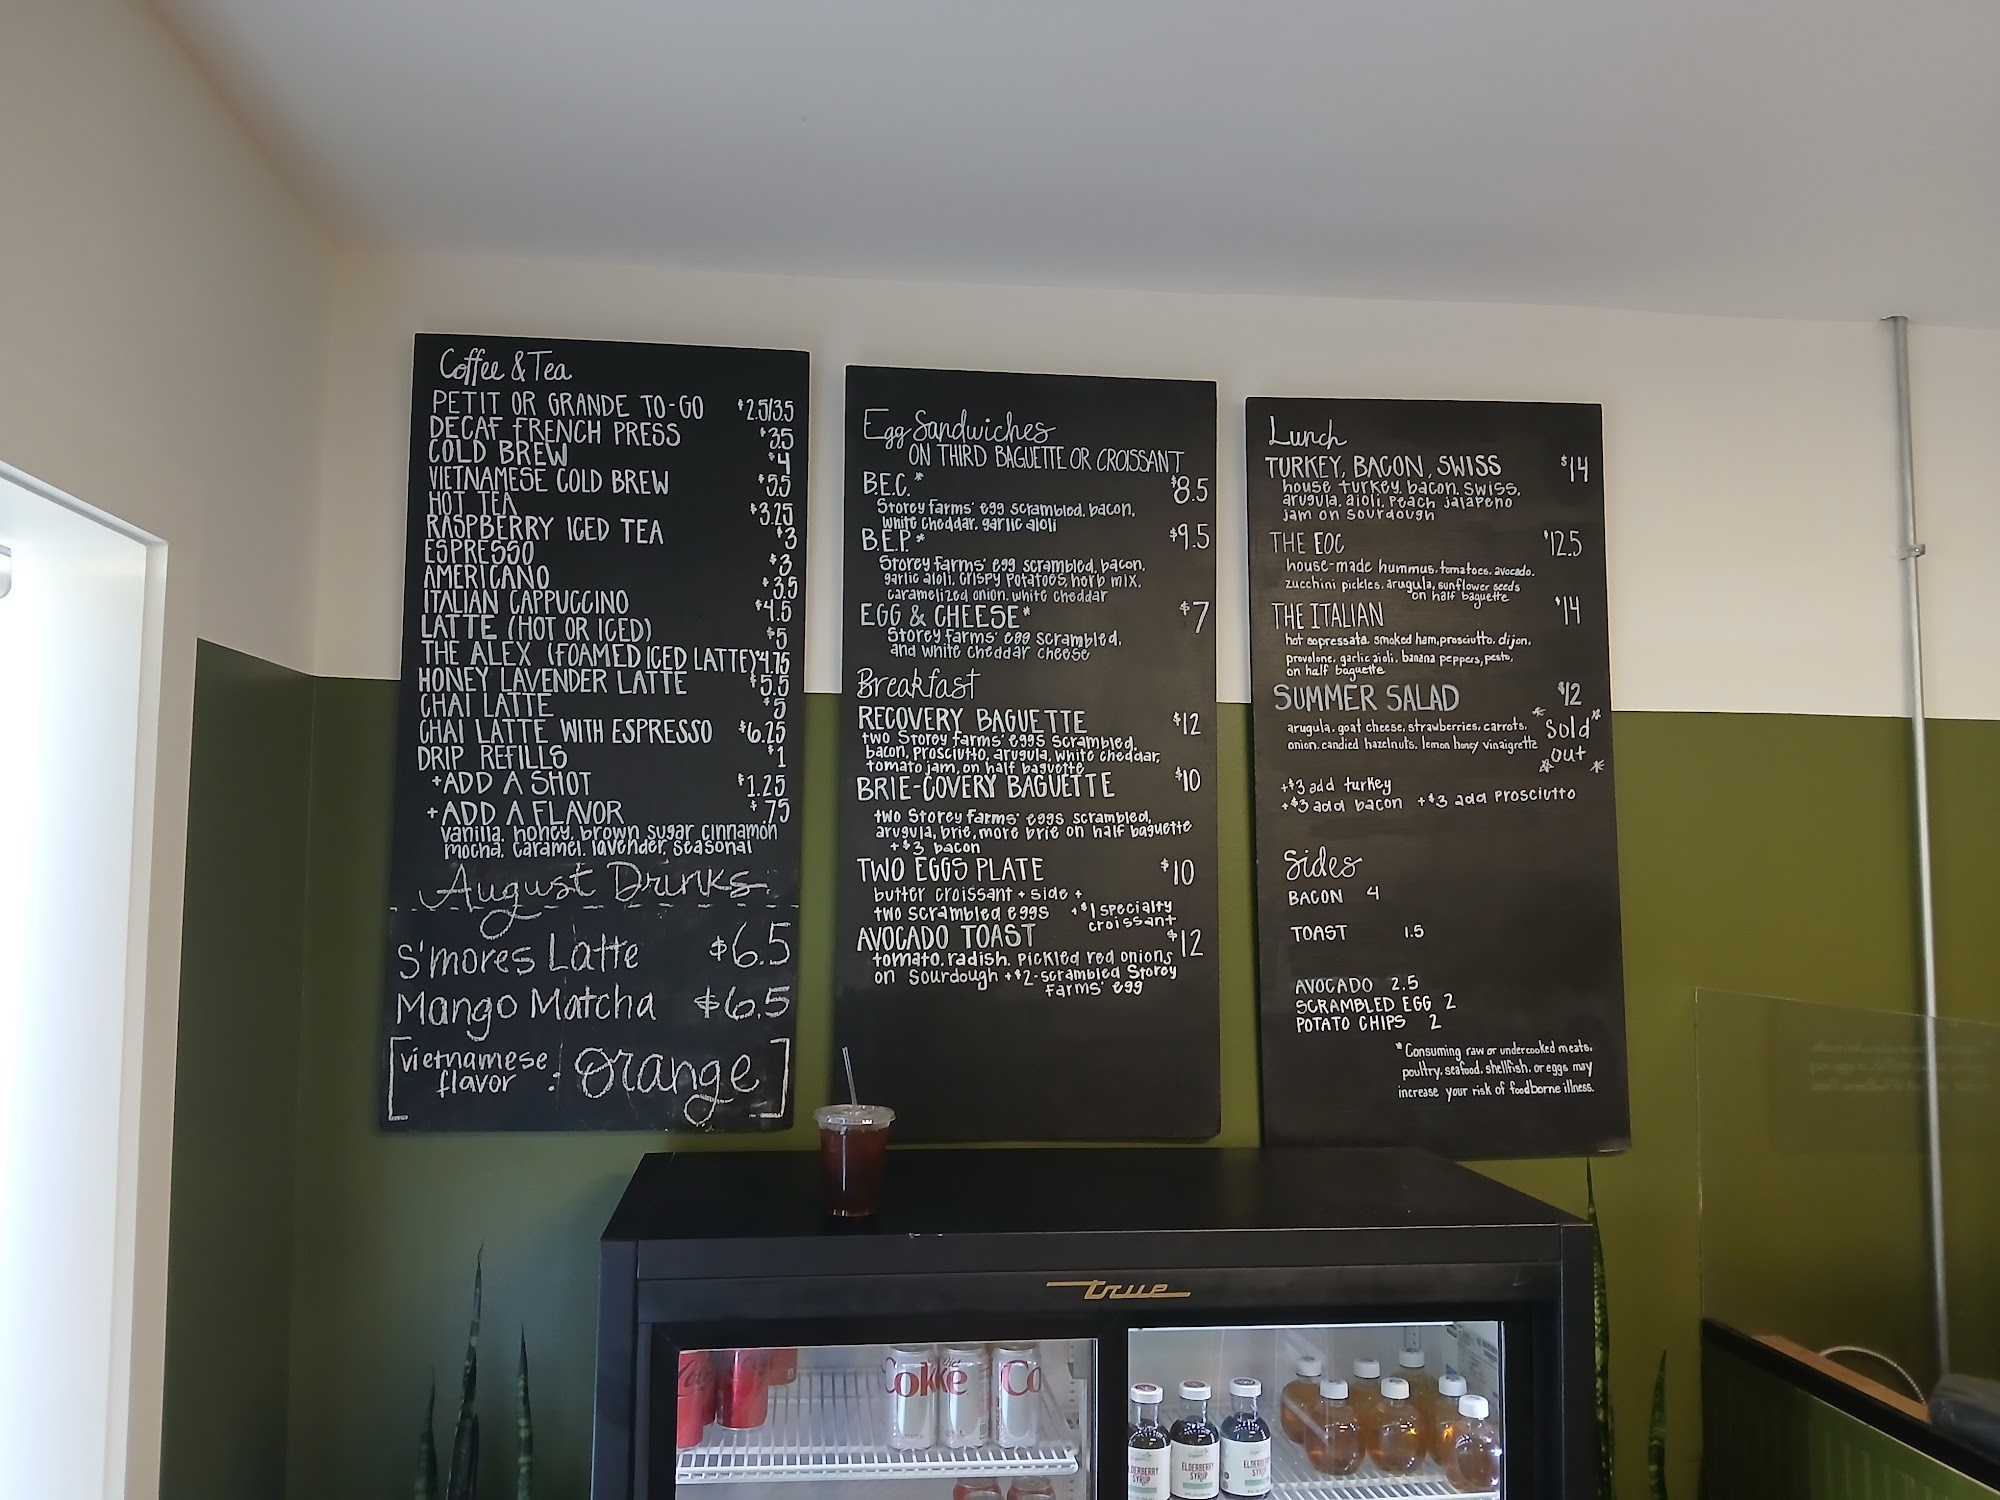 Coffee & Tea
PETIT OR GRANDE TO-GO $2.5/3.5
DECAF FRENCH PRESS $3.5
COLD BREW $4
VIETNAMESE COLD BREW $5.5
HOT TEA $3.25
RASPBERRY ICED TEA $3
ESPRESSO $3
AMERICANO $3.5
ITALIAN CAPPUCCINO $4.5
LATTE (HOT OR ICED) $5
THE ALEX (FOAMED ICED LATTE) $4.75
HONEY LAVENDER LATTE $5.5
CHAI LATTE $5
CHAI LATTE WITH ESPRESSO $6.25
DRIP REFILLS $1
+ADD A SHOT $1.25
+ADD A FLAVOR $.75
vanilla, honey, brown sugar cinnamon
mocha, caramel, lavender, seasonal
August Drinks:
S'mores Latte $6.5
Mango Matcha $6.5
[vietnamese flavor : orange]
Egg Sandwiches
ON THIRD BAGUETTE OR CROISSANT
B.E.C.* $8.5
Storey Farms' egg scrambled, bacon,
white cheddar, garlic aioli
B.E.P.* $9.5
Storey Farms' egg scrambled, bacon,
garlic aioli, crispy potatoes, herb mix,
caramelized onion, white cheddar
EGG & CHEESE* $7
Storey Farms' egg scrambled,
and white cheddar cheese
Breakfast
RECOVERY BAGUETTE $12
two Storey Farms' eggs scrambled,
bacon, prosciutto, arugula, white cheddar,
tomato jam, on half baguette
BRIE-COVERY BAGUETTE $10
two Storey Farms' eggs scrambled,
arugula, brie, more brie on half baguette
+$3 bacon
TWO EGGS PLATE $10
butter croissant + side +
two scrambled eggs +$1 specialty
croissant
AVOCADO TOAST $12
tomato, radish, pickled red onions
on sourdough +$2-scrambled Storey
Farms' egg
Lunch
TURKEY, BACON, SWISS $14
house turkey, bacon, swiss,
arugula, aioli, peach jalapeno
jam on sourdough
THE EOC $12.5
house-made hummus, tomatoes, avocado,
zucchini pickles, arugula, sunflower seeds
on half baguette
THE ITALIAN $14
hot sopressata, smoked ham, prosciutto, dijon,
provolone, garlic aioli, banana peppers, pesto,
on half baguette
SUMMER SALAD $12
arugula, goat cheese, strawberries, carrots,
onion, candied hazelnuts, lemon honey vinaigrette
*Sold*
*out*
+$3 add turkey
+$3 add bacon +$3 add prosciutto
Sides
BACON 4
TOAST 1.5
AVOCADO 2.5
SCRAMBLED EGG 2
POTATO CHIPS 2
*Consuming raw or undercooked meats,
poultry, seafood, shellfish, or eggs may
increase your risk of foodborne illness.
true
Coke
Co
ELDERBERRY SYRUP